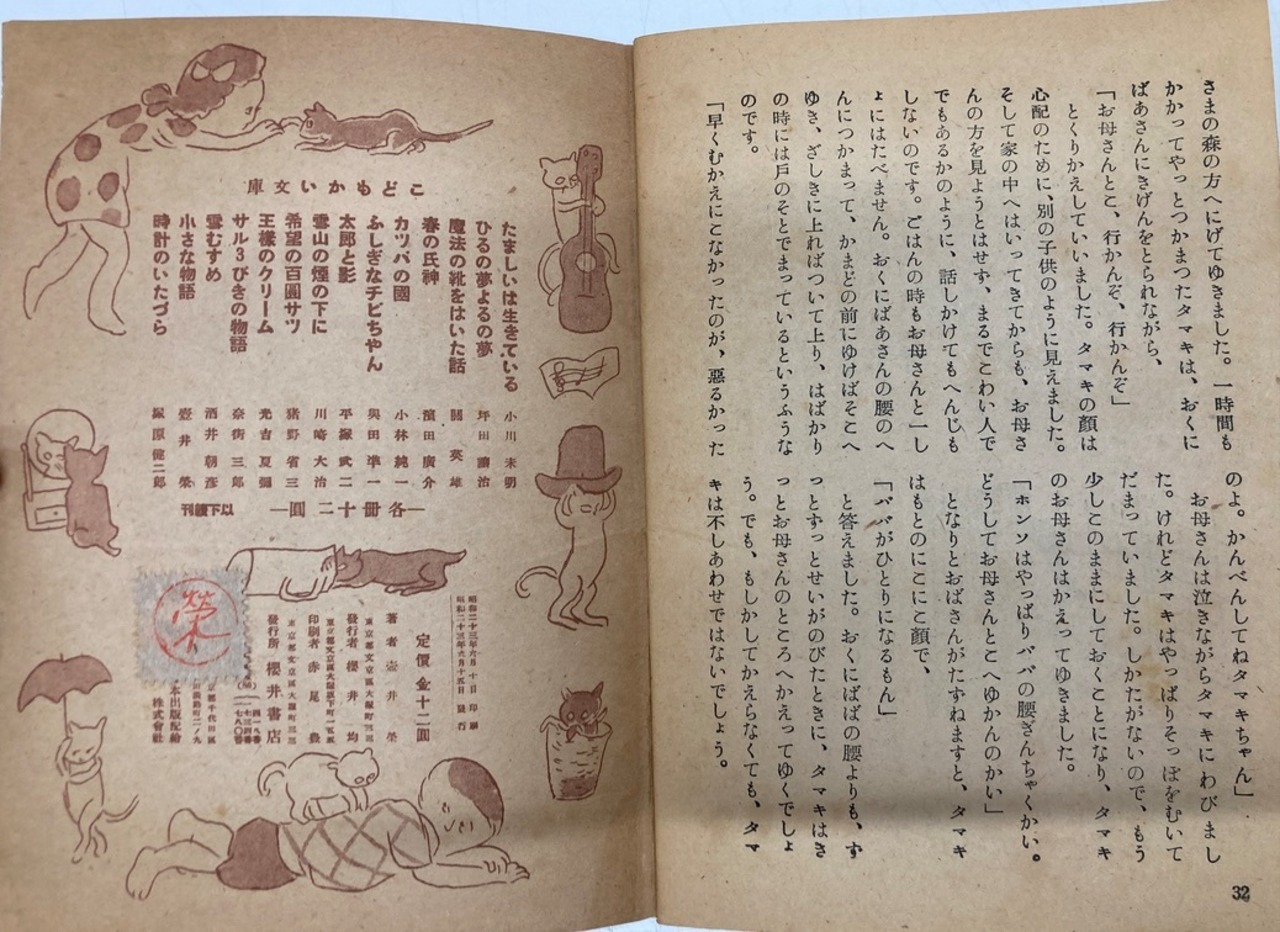 さまの森の方へにげてゆきました。一時間も
かかってやっとつかまつたタマキは、おくに
ばあさんにきげんをとられながら、
「お母さんとこ、行かんぞ、行かんぞ」
とくりかえしていいました。タマキの顔は
心配のために、別の子供のように見えました。
そして家の中へはいってきてからも、お母さ
んの方を見ようとはせず、まるでこわい人で
でもあるかのように、話しかけてもへんじも
しないのです。ごはんの時もお母さんと一し
ょにはたべません。おくにばあさんの腰のへ
んにつかまって、かまどの前にゆけばそこへ
ゆき、ざしきに上ればついて上り、はばかり
の時には戸のそとでまっているというふうな
のです。
「早くむかえにこなかったのが、悪るかった
のよ。かんべんしてねタマキちゃん」
お母さんは泣きながらタマキにわびまし
た。けれどタマキはやっぱりそっぽをむいて
だまっていました。しかたがないので、もう
少しこのままにしておくことになり、タマキ
のお母さんはかえってゆきました。
「ホンソはやっぱりババの腰ぎんちゃくかい。
どうしてお母さんとこへゆかんのかい」
となりとおばさんがたずねますと、タマキ
はもとのにこにこ顔で、
「ババがひとりになるもん」
と答えました。おくにばばの腰よりも、ず
っとずっとせいがのびたときに、タマキはき
っとお母さんのところへかえってゆくでしょ
う。でも、もしかしてかえらなくても、タマ
キは不しあわせではないでしょう。
32
こどもかい文庫
たましいは生きている 小川未明
ひるの夢よるの夢 坪田譲治
魔法の靴をはいた話 關英雄
春の氏神 濱田廣介
カッパの國 小林純一
ふしぎなチビちゃん 與田準一
太郎と影 平塚武二
雪山の煙の下に 川崎大治
希望の百圓サツ 猪野省三
王樣のクリーム 光吉夏彌
サル3びきの物語 奈街三郎
雪むすめ 酒井朝彦
小さな物語 壺井榮
時計のいたづら 塚原健二郎
―各冊十二圓―
以下續刊
昭和二十三年六月十日印刷
昭和二十三年六月十五日發行
定價金十二圓
著者 壺井榮
東京都文京區大塚町三三
發行者 櫻井均
印刷者 赤尾豊
東京都文京區大塚町三三
發行所 櫻井書店
榮
本出版配給
株式會社